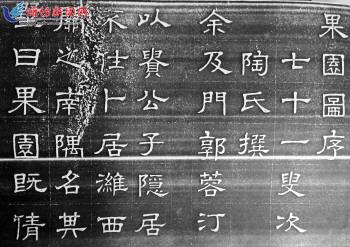 果園圖序
七十一叟次
陶氏撰
余及門郭蓉汀
以貴公子隱居
不仕卜居濰西
之南隅名其
曰果園既倩